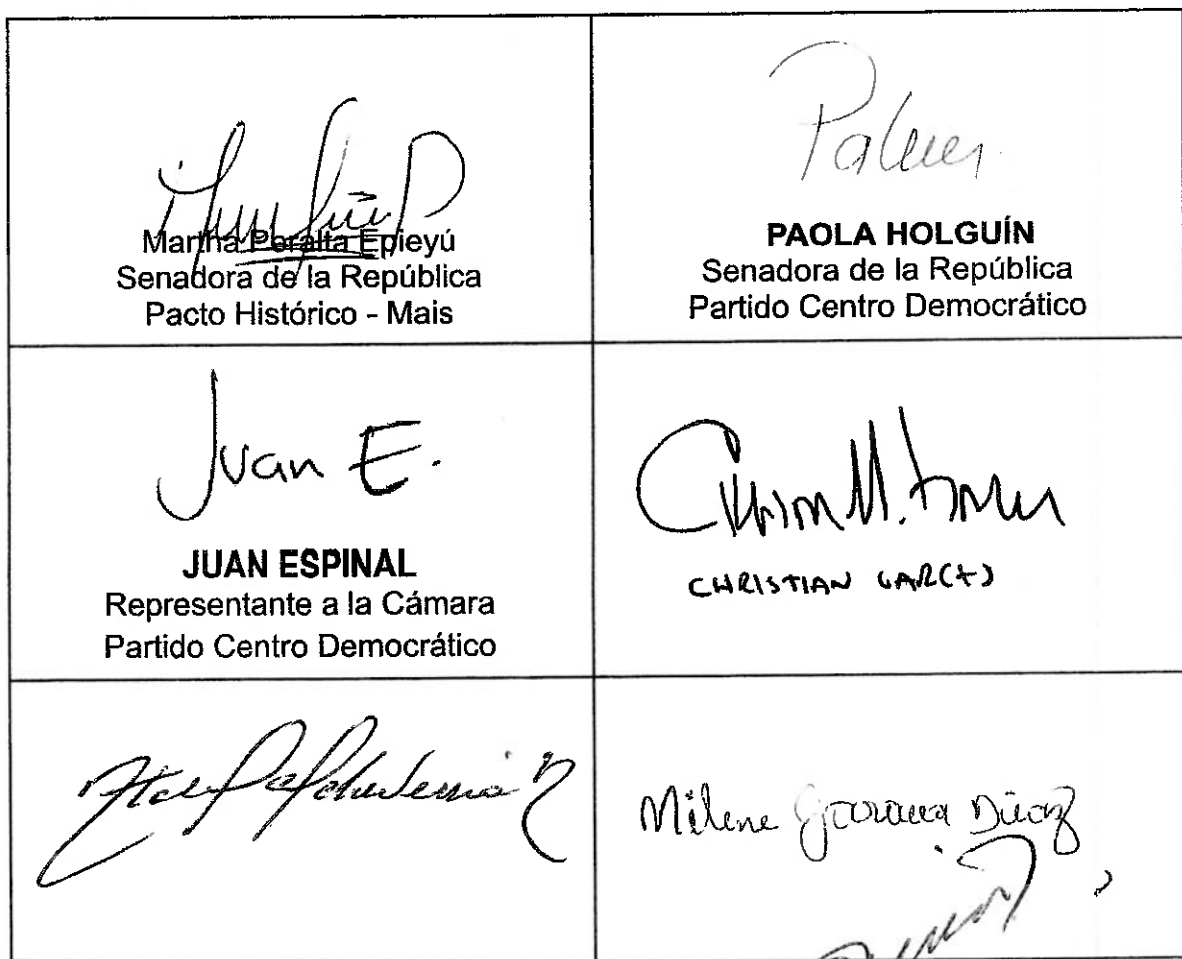 Martha Peralta Epieyú
Senadora de la República
Pacto Histórico - Mais
PAOLA HOLGUÍN
Senadora de la República
Partido Centro Democrático
Juan E.
JUAN ESPINAL
Representante a la Cámara
Partido Centro Democrático
CHRISTIAN GARCÉS
Milene Díaz